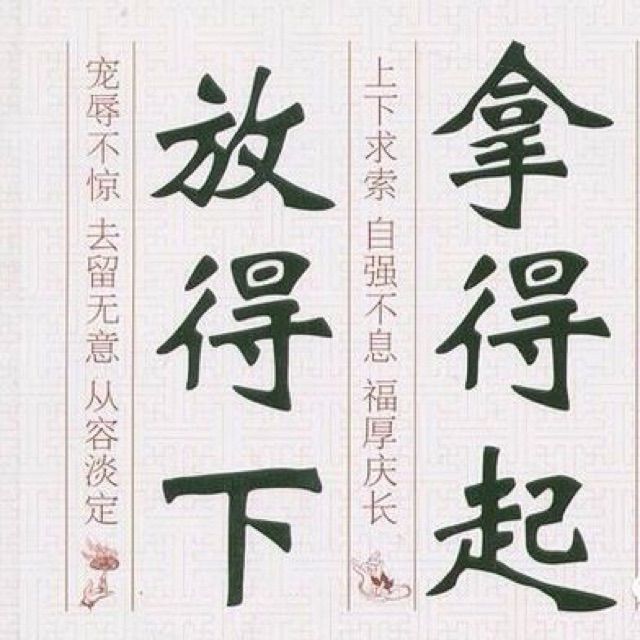 拿得起
上下求索 自强不息 福厚庆长
放得下
宠辱不惊 去留无意 从容淡定